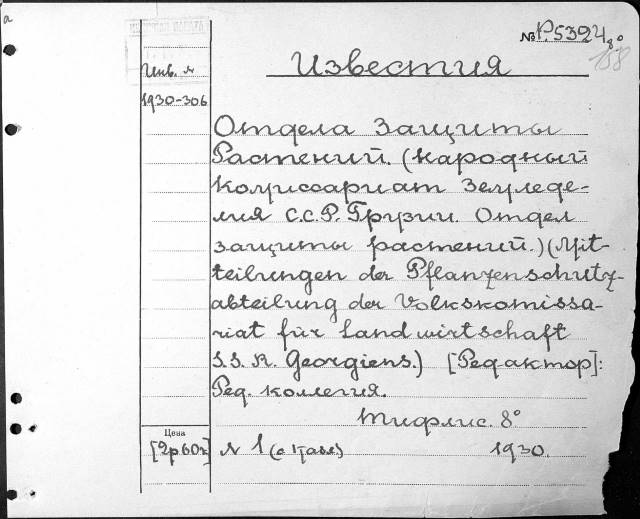 a
№ P.5324 8°
158
Известия
Инв. №
1930-306
Отдела Защиты
Растений. (Народный
Комиссариат Земледе-
лия С.С.Р. Грузии. Отдел
защиты растений.) (Mit-
teilungen der Pflanzenschutz-
abteilung der Volkskomissa-
riat für Landwirtschaft
S.S.R. Georgiens.) [Редактор]:
Ред. коллегия.
Тифлис. 8°
Цена
[2р60к] № 1 (с табл.) 1930.